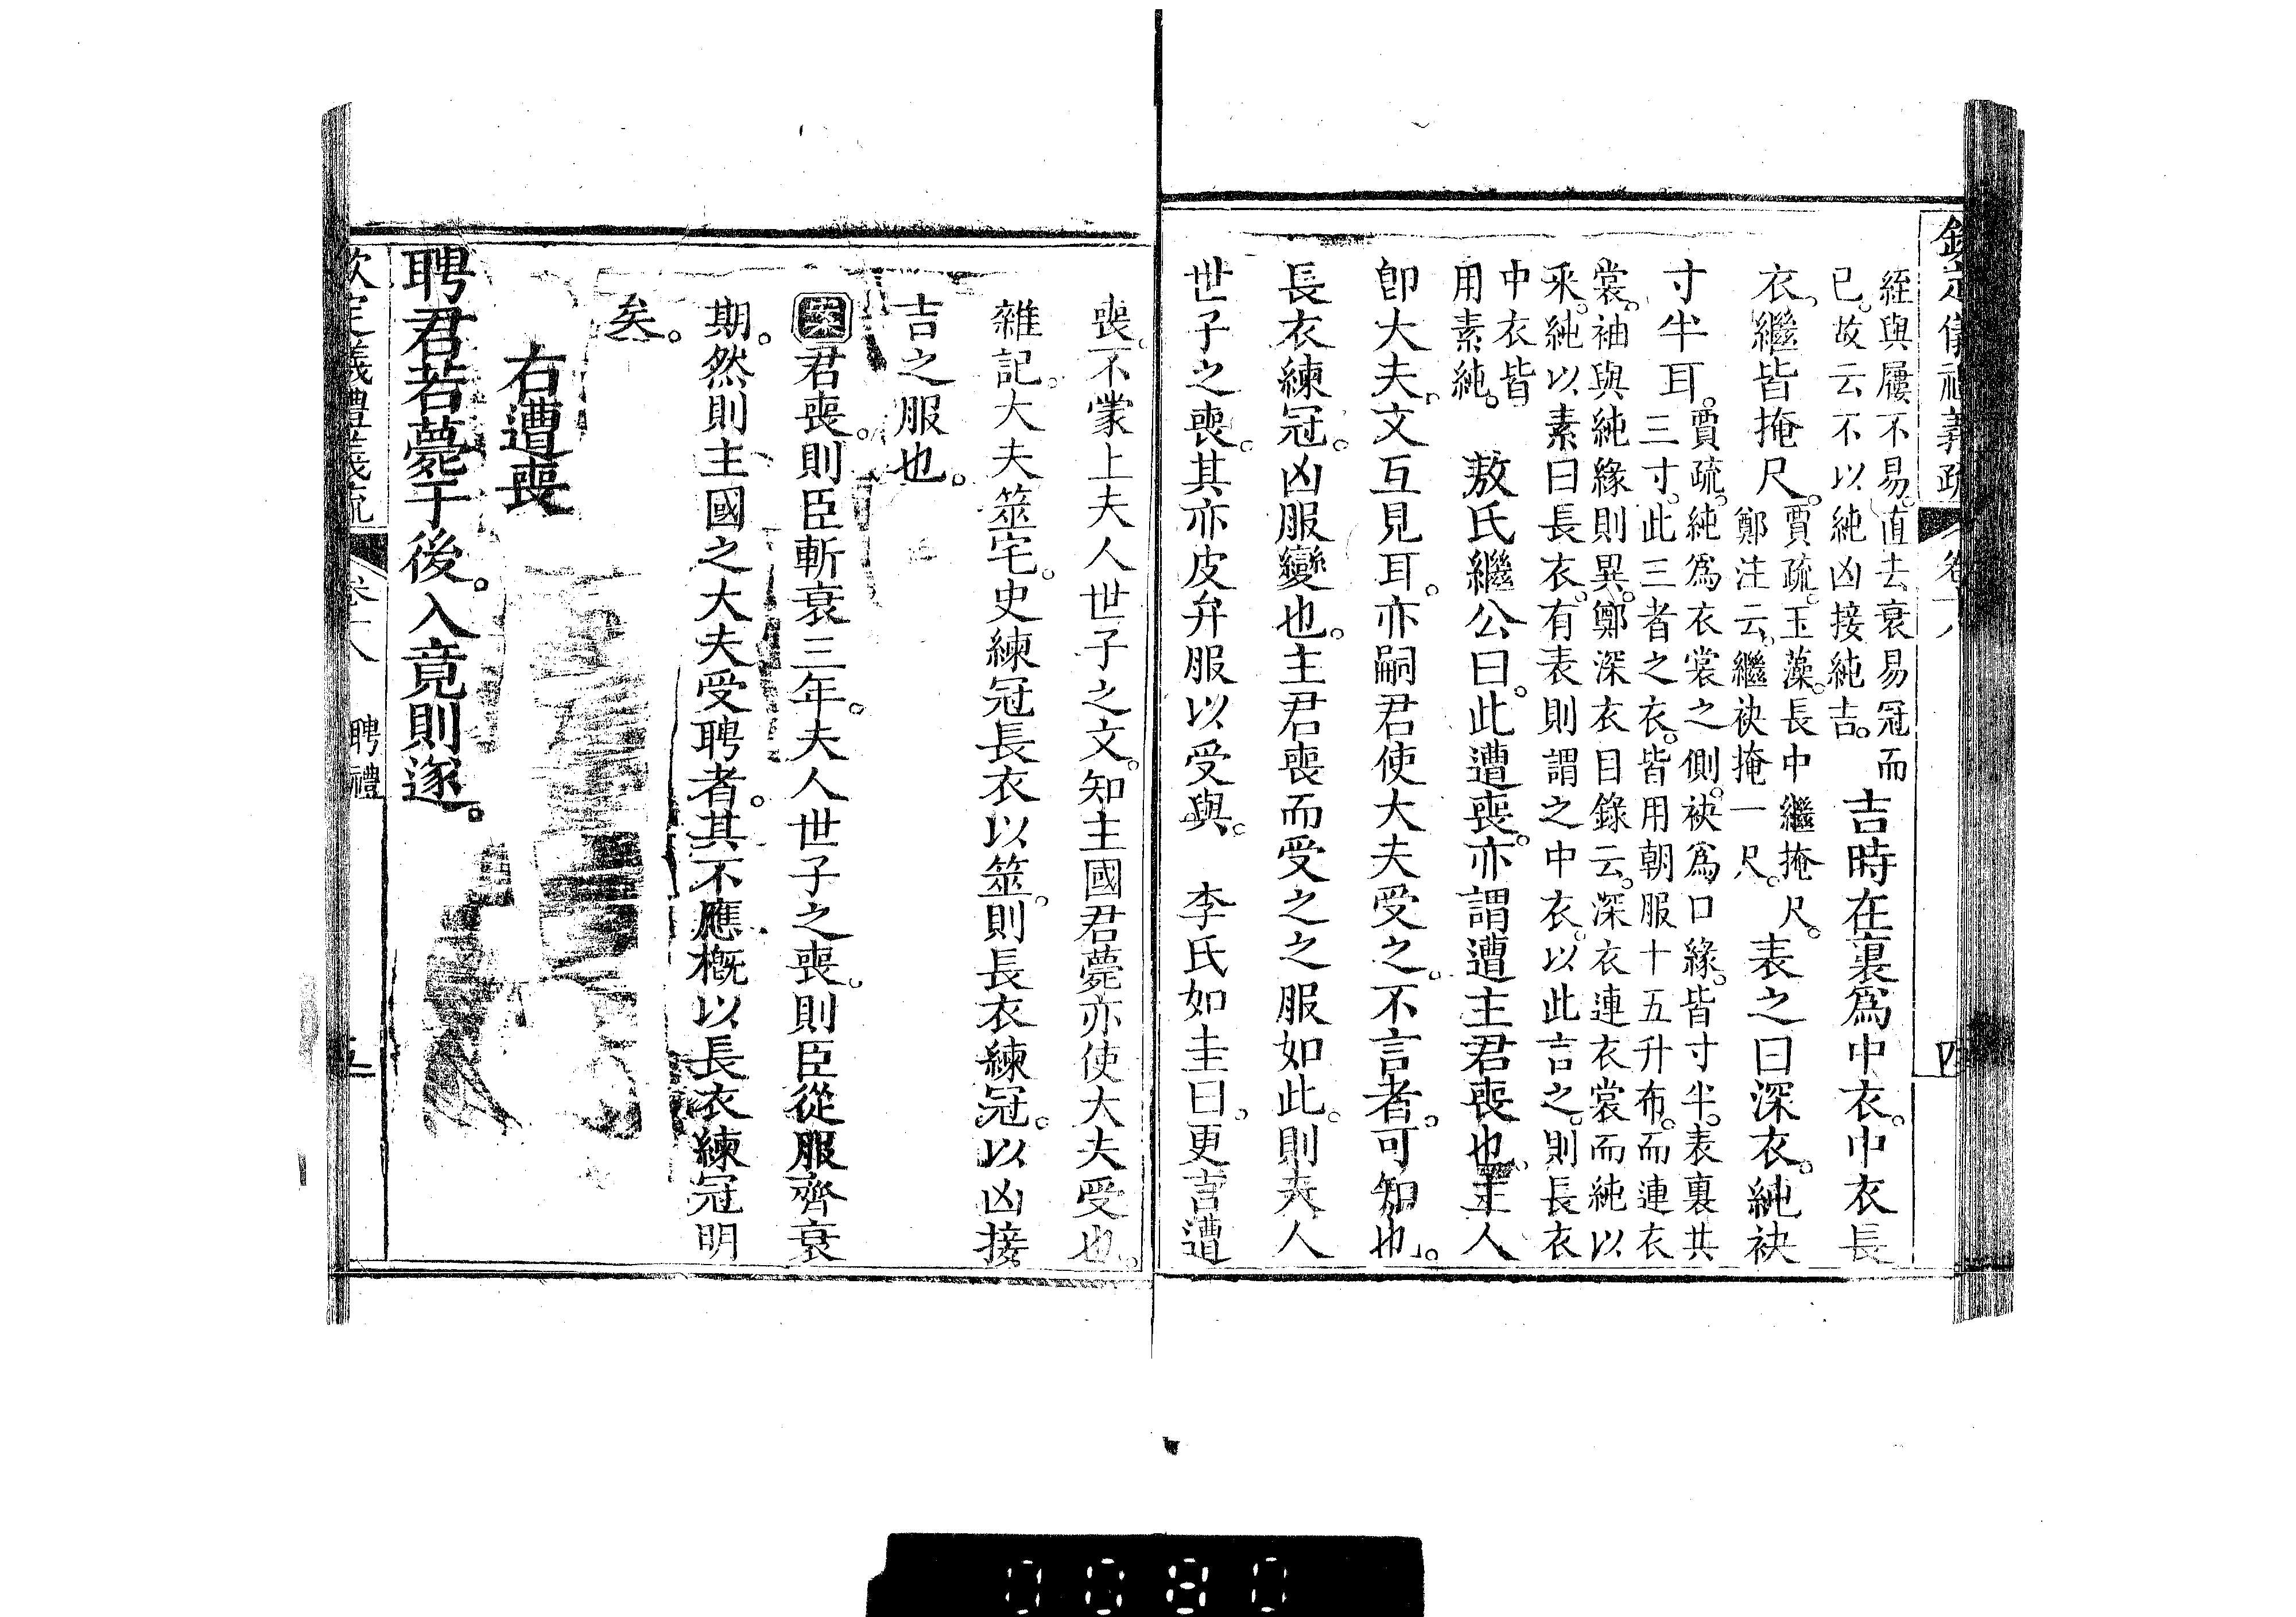 欽定儀禮義疏 卷十八 四
絰與屨不易。直去衰易冠而
已。故云不以純凶接純吉。
吉時在裏爲中衣。中衣長
衣。繼皆掩尺。
賈疏。玉藻。長中繼掩尺。
鄭注云。繼袂掩一尺。
表之曰深衣。純袂
寸半耳。
賈疏。純爲衣裳之側。袂爲口緣。皆寸半。表裏共
三寸。此三者之衣。皆用朝服十五升布。而連衣
裳。袖與純緣則異。鄭深衣目錄云。深衣連衣裳而純以
采。純以素曰長衣。有表則謂之中衣。以此言之。則長衣
中衣皆
用素純。
敖氏繼公曰。此遭喪。亦謂遭主君喪也。主人
卽大夫。文互見耳。亦嗣君使大夫受之。不言者。可知也。
長衣練冠。凶服變也。主君喪而受之之服如此。則夫人
世子之喪。其亦皮弁服以受與。 李氏如圭曰。更言遭
喪。不蒙上夫人世子之文。知主國君薨亦使大夫受也。
雜記。大夫筮宅。史練冠長衣以筮。則長衣練冠。以凶接
吉之服也。
案君喪。則臣斬衰三年。夫人世子之喪。則臣從服齊衰
期。然則主國之大夫受聘者。其不應槪以長衣練冠明
矣。
右遭喪
聘君若薨于後。入竟則遂。
欽定儀禮義疏 卷十八 聘禮 五
0080